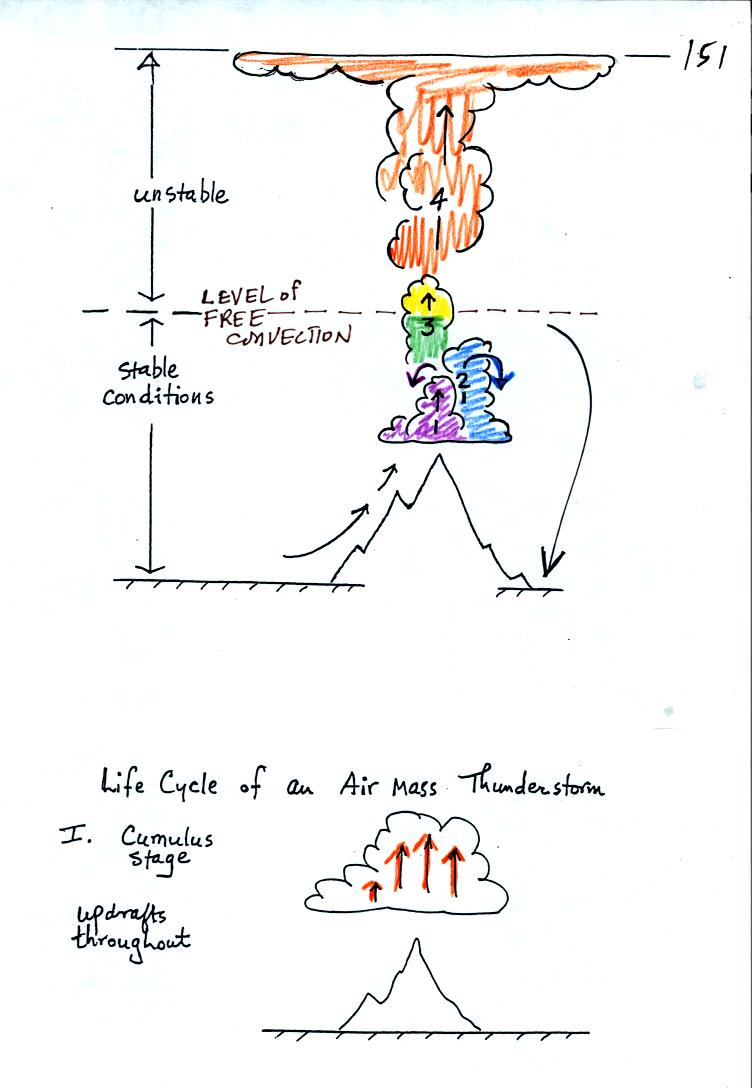 151
unstable
LEVEL of
FREE
CONVECTION
stable
conditions
4
3
2
1
Life Cycle of an Air Mass Thunderstorm
I. Cumulus
stage
updrafts
throughout